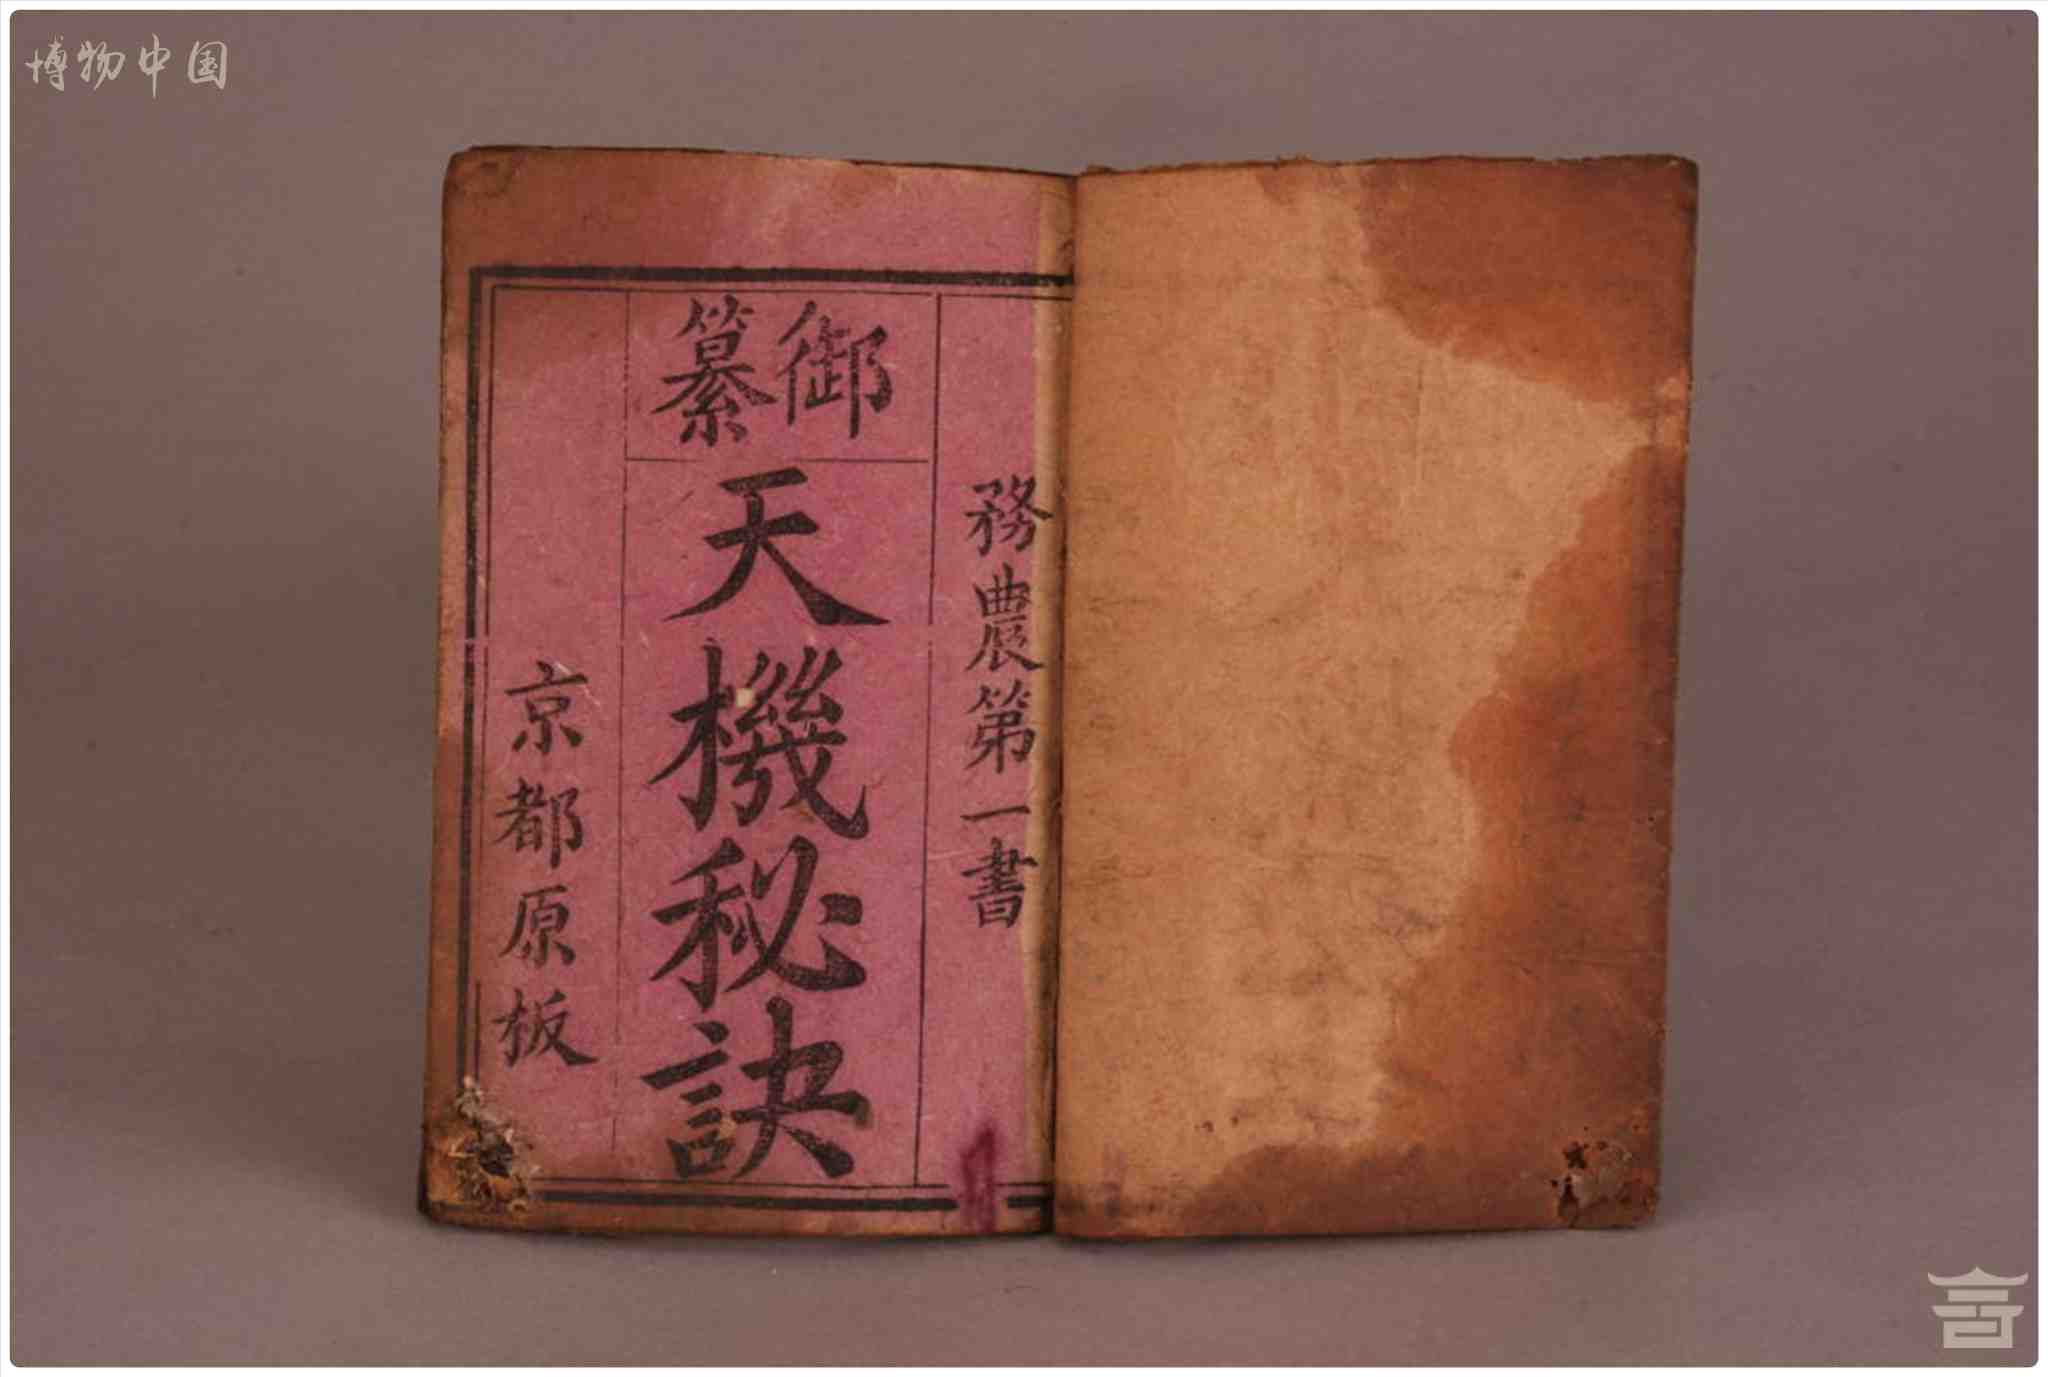 博物中国
務農第一書
御纂
天機秘訣
京都原板